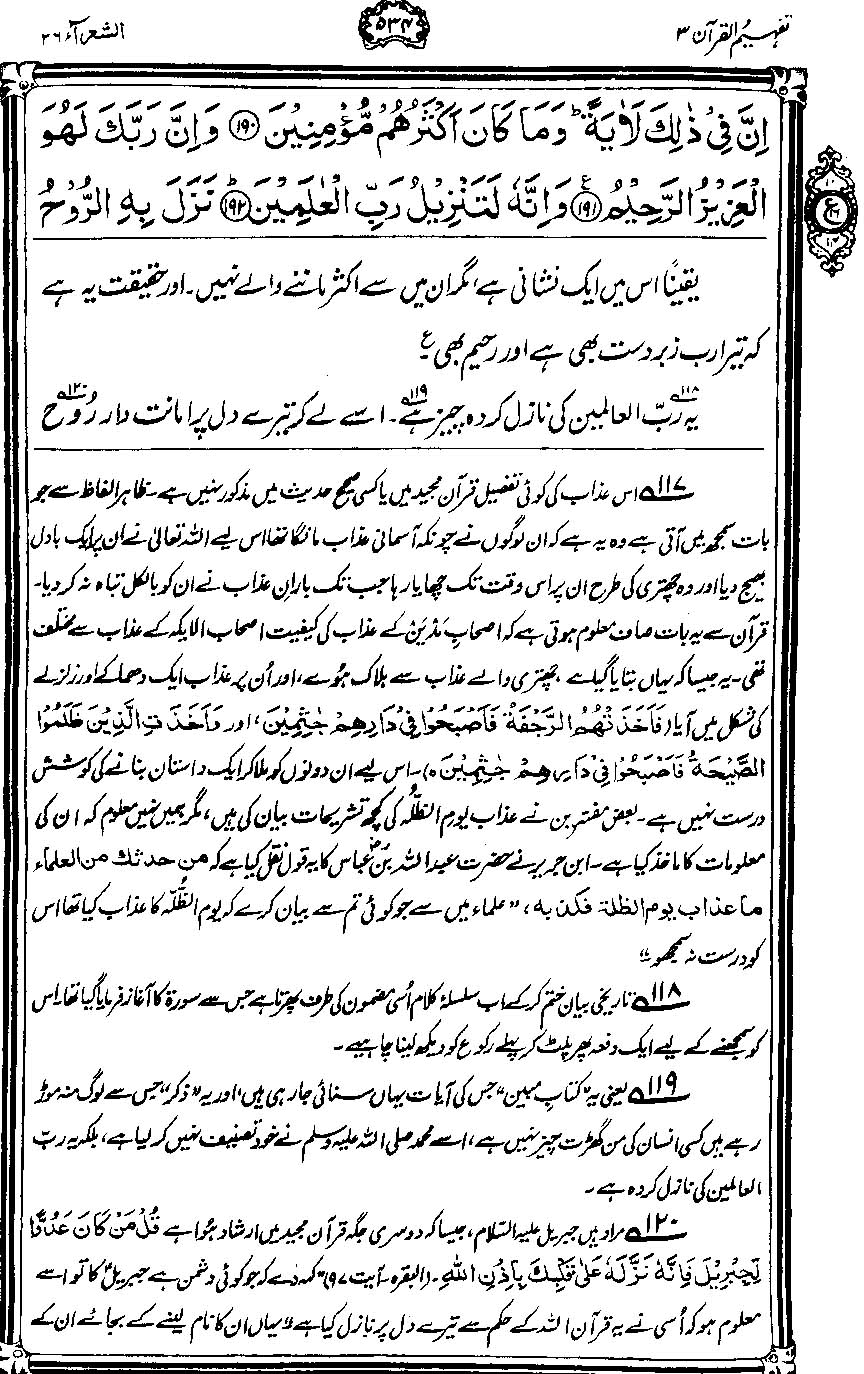 تفہیم القرآن ۳
۵۳۴
الشعرآء ۲۶
اِنَّ فِیْ ذٰلِكَ لَاٰیَةً ؕ وَمَا كَانَ اَكْثَرُهُمْ مُّؤْمِنِیْنَ ﴿۱۹۰﴾ وَاِنَّ رَبَّكَ لَهُوَ
الْعَزِیْزُ الرَّحِیْمُ ﴿۱۹۱﴾ ع وَاِنَّهٗ لَتَنْزِیْلُ رَبِّ الْعٰلَمِیْنَ ﴿۱۹۲﴾ؕ نَزَلَ بِهِ الرُّوْحُ
۱۰
ع
۱۲
یقینًا اس میں ایک نشانی ہے، مگر ان میں سے اکثر ماننے والے نہیں۔ اور حقیقت یہ ہے
کہ تیرا رب زبردست بھی ہے اور رحیم بھی ع
یہ ربّ العالمین کی نازل کردہ چیز ہے۔ اسے لے کر تیرے دل پر امانت دار رُوح
۱۱۸ ۱۱۹ ۱۲۰
۱۱۷ اس عذاب کی کوئی تفصیل قرآن مجید میں یا کسی صحیح حدیث میں مذکور نہیں ہے۔ ظاہر الفاظ سے جو
بات سمجھ میں آتی ہے وہ یہ ہے کہ ان لوگوں نے چونکہ آسمانی عذاب مانگا تھا اس لیے اللہ تعالیٰ نے ان پر ایک بادل
بھیج دیا اور وہ چھتری کی طرح ان پر اس وقت تک چھایا رہا جب تک بارانِ عذاب نے ان کو بالکل تباہ نہ کر دیا۔
قرآن سے یہ بات صاف معلوم ہوتی ہے کہ اصحابِ مَدْیَن کے عذاب کی کیفیت اصحاب الایکہ کے عذاب سے مختلف
تھی۔ یہ جیسا کہ یہاں بتایا گیا ہے، چھتری والے عذاب سے ہلاک ہوئے، اور اُن پر عذاب ایک دھماکے اور زلزلے
کی شکل میں آیا (فَاَخَذَتْهُمُ الرَّجْفَةُ فَاَصْبَحُوْا فِیْ دَارِهِمْ جٰثِمِیْنَ، اور وَاَخَذَتِ الَّذِیْنَ ظَلَمُوا
الصَّیْحَةُ فَاَصْبَحُوْا فِیْ دِیَارِهِمْ جٰثِمِیْنَ ۝)۔ اس لیے ان دونوں کو ملا کر ایک داستان بنانے کی کوشش
درست نہیں ہے۔ بعض مفسّرین نے عذاب یوم الظُّلّہ کی کچھ تشریحات بیان کی ہیں، مگر ہمیں نہیں معلوم کہ ان کی
معلومات کا ماخذ کیا ہے۔ ابن جریر نے حضرت عبداللہ بنؓ عباس کا یہ قول نقل کیا ہے کہ من حدثك من العلماء
ما عذاب يوم الظلة فكذبه، ”علماء میں سے جو کوئی تم سے بیان کرے کہ یوم الظُّلّہ کا عذاب کیا تھا اس
کو درست نہ سمجھو“
۱۱۸ تاریخی بیان ختم کر کے اب سلسلۂ کلام اُسی مضمون کی طرف پھرتا ہے جس سے سورۃ کا آغاز فرمایا گیا تھا۔ اس
کو سمجھنے کے لیے ایک دفعہ پھر پلٹ کر پہلے رکوع کو دیکھ لینا چاہیے۔
۱۱۹ یعنی یہ ”کتابِ مبین“ جس کی آیات یہاں سنائی جا رہی ہیں، اور یہ ”ذکر“ جس سے لوگ منہ موڑ
رہے ہیں کسی انسان کی من گھڑت چیز نہیں ہے، اسے محمد صلی اللہ علیہ وسلم نے خود تصنیف نہیں کر لیا ہے، بلکہ یہ ربّ
العالمین کی نازل کردہ ہے۔
۱۲۰ مراد ہیں جبریل علیہ السّلام، جیسا کہ دوسری جگہ قرآن مجید میں ارشاد ہُوا ہے قُلْ مَنْ كَانَ عَدُوًّا
لِّجِبْرِیْلَ فَاِنَّهٗ نَزَّلَهٗ عَلٰی قَلْبِكَ بِاِذْنِ اللّٰهِ۔ (البقرہ۔ آیت ۹۷) ”کہہ دے کہ جو کوئی دشمن ہے جبریلؑ کا تو اسے
معلوم ہو کہ اُسی نے یہ قرآن اللہ کے حکم سے تیرے دل پر نازل کیا ہے“ یہاں ان کا نام لینے کے بجائے ان کے